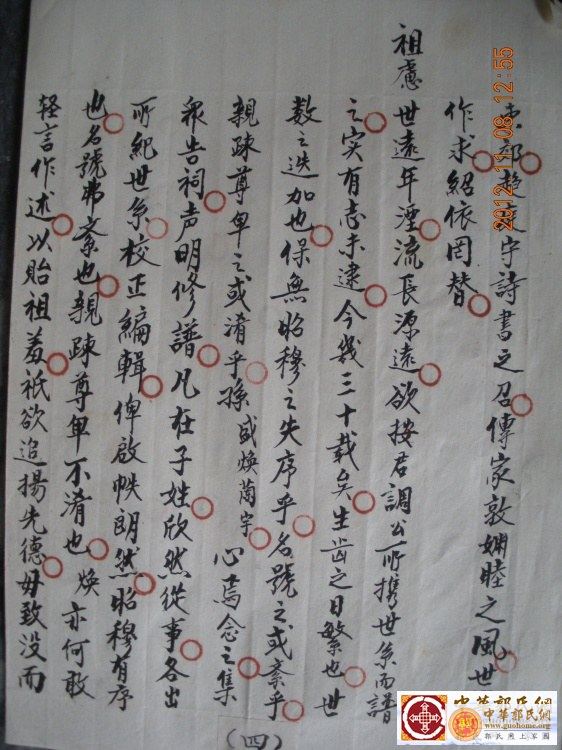 書之召傳家敦姻睦之風世
作求紹依罔替
祖處世遠年湮流長源遠欲按君調公所攜世系而譜
之实有志未逮今幾三十载矣生齿之日繁也世
数之迭加也保無昭穆之失序乎名號之或紊乎
親疎尊卑之或淆乎孫盛煥蘭宇心焉念之集
衆告祠声明修譜凡在子姓欣然從事各出
所紀世系校正編輯俾啟帙朗然昭穆有序
也名號弗紊也親疎尊卑不淆也煥亦何敢
轻言作述以貽祖羞祇欲追揚先德毋致没而
(四)
2012-11-08 12:55
中華郭氏網
中華郭氏網
www.guohome.org
郭氏網上家園